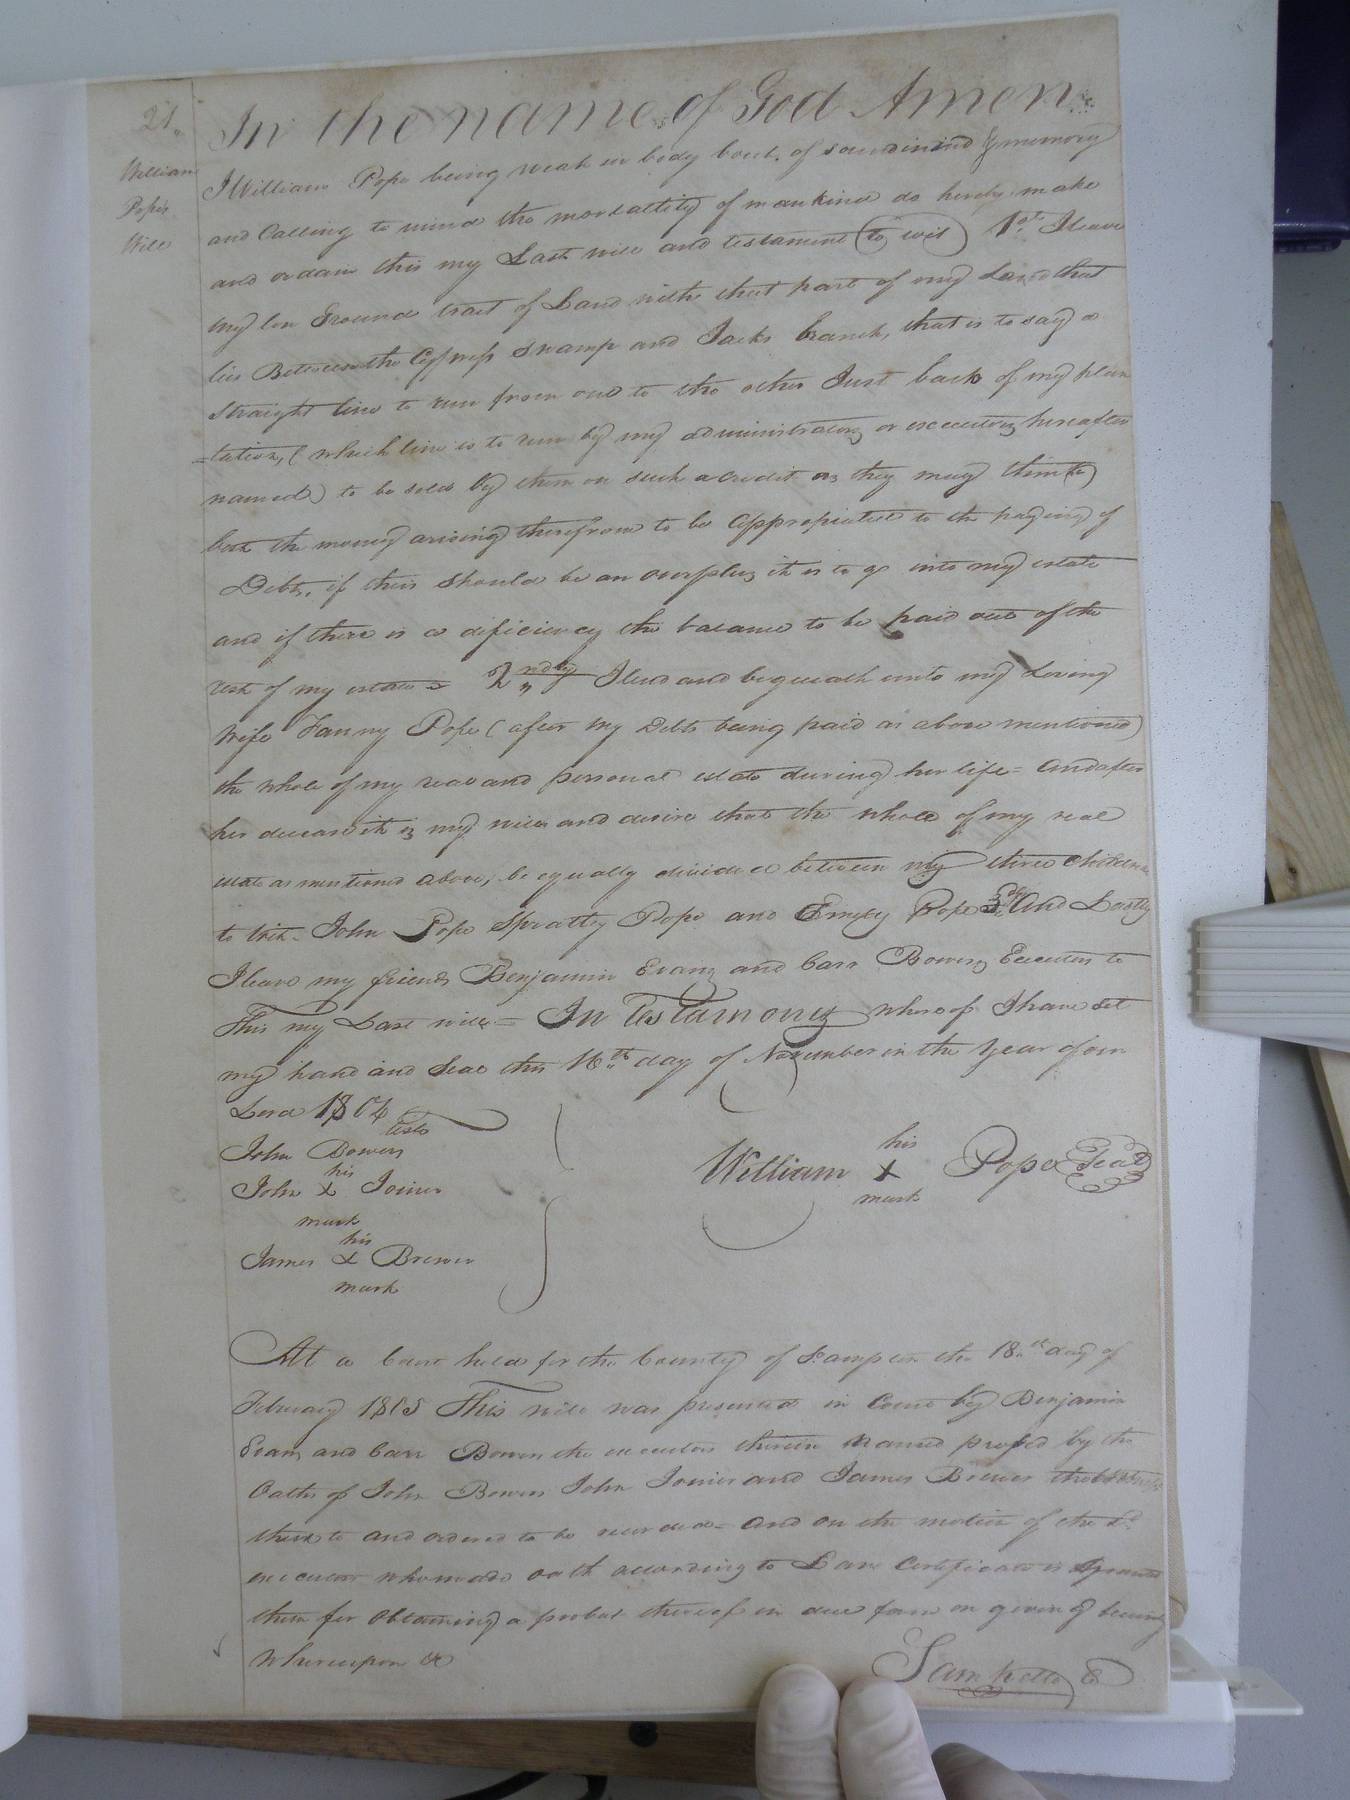 21.
William
Pope's
Will
In the name of God Amen
I William Pope being weak in body but of sound mind & memory
and Calling to mind the mortallity of mankind do hereby make
and ordain this my Last will and testament (to wit) 1st I leave
my low Ground tract of Land with that part of my Land that
lies Between the Cypress Swamp and Jacks branch, that is to say a
straight line to run from one to the other Just back of my plan
=tation, (which line is to run by my administrators or executors hereafter
named) to be sold by them on such a credit as they may think
best the money arising therefrom to be appropiated to the paying of
Debts, if their should be an overplus it is to go into my estate
and if there is a deficiency the balance to be paid out of the
rest of my estate 2ndly I lend and bequeath unto my Loving
Wife Fanny Pope (after my Debts being paid as above mentioned)
the whole of my real and personal estate during her life = and after
her decease it is my will and desire that the whole of my real
estate as mentioned above, be equally divided between my three children
to wit- John Pope Spratley Pope and Empey Pope 3dly And Lastly
I leave my friends Benjamin Evans and Carr Bowers Executors to
This my Last will = In Testamony whereof I have set
my hand and Seal this 16th day of November in the Year of our
Lord 1804
Teste
John Bowers
his
John X Joiner
mark
his
James X Brewer
mark
his
William X Pope Seal
mark
At a Court held for the County of So.ampton the 18th day of
February 1805 This will was presented in Court by Benjamin
Evans and Carr Bowers the executors therein named proved by the
Oaths of John Bowers John Joiner and James Brewer the
thereto and ordered to be recorded = and on the motion of the sd
executors who made oath according to Law Certificate is granted
them for obtaining a probat thereof in due form on giving security
Whereupon &c
Sam Kello C